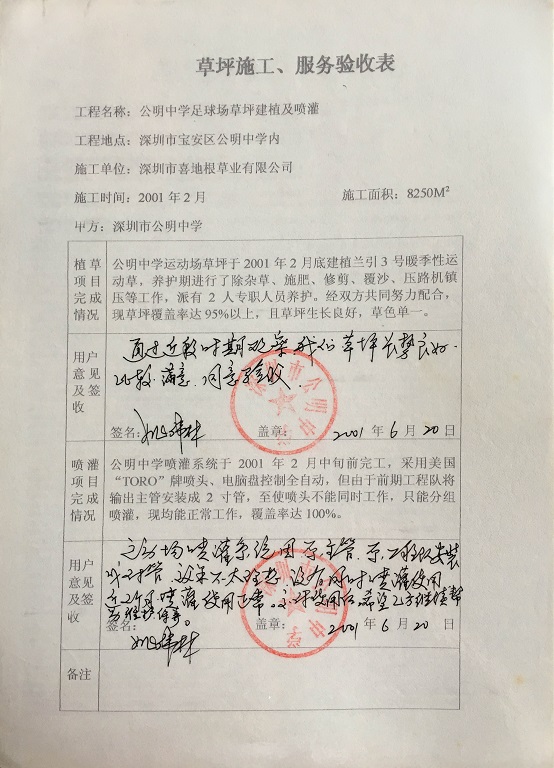 草坪施工、服务验收表
工程名称：公明中学足球场草坪建植及喷灌
工程地点：深圳市宝安区公明中学内
施工单位：深圳市喜地根草业有限公司
施工时间：2001 年 2 月 施工面积：8250M²
甲方：深圳市公明中学
植草项目完成情况
公明中学运动场草坪于 2001 年 2 月底建植兰引 3 号暖季性运
动草，养护期进行了除杂草、施肥、修剪、覆沙、压路机镇
压等工作，派有 2 人专职人员养护。经双方共同努力配合，
现草坪覆盖率达 95%以上，且草坪生长良好，草色单一。
用户意见及签收
通过近段时期观察，我们草坪长势良好.
比较满意，同意验收.
签名： 盖章： 2001 年 6 月 20 日
喷灌项目完成情况
公明中学喷灌系统于 2001 年 2 月中旬前完工，采用美国
“TORO”牌喷头、电脑盘控制全自动，但由于前期工程队将
输出主管安装成 2 寸管，至使喷头不能同时工作，只能分组
喷灌，现均能正常工作，覆盖率达 100%。
用户意见及签收
运动场喷灌系统因原主管原工程队安装
成2寸管，效果不太理想，没有同时喷灌使用
近2个月喷灌使用正常。希望乙方继续帮
维护保养。
签名： 盖章： 2001 年 6 月 20 日
备注